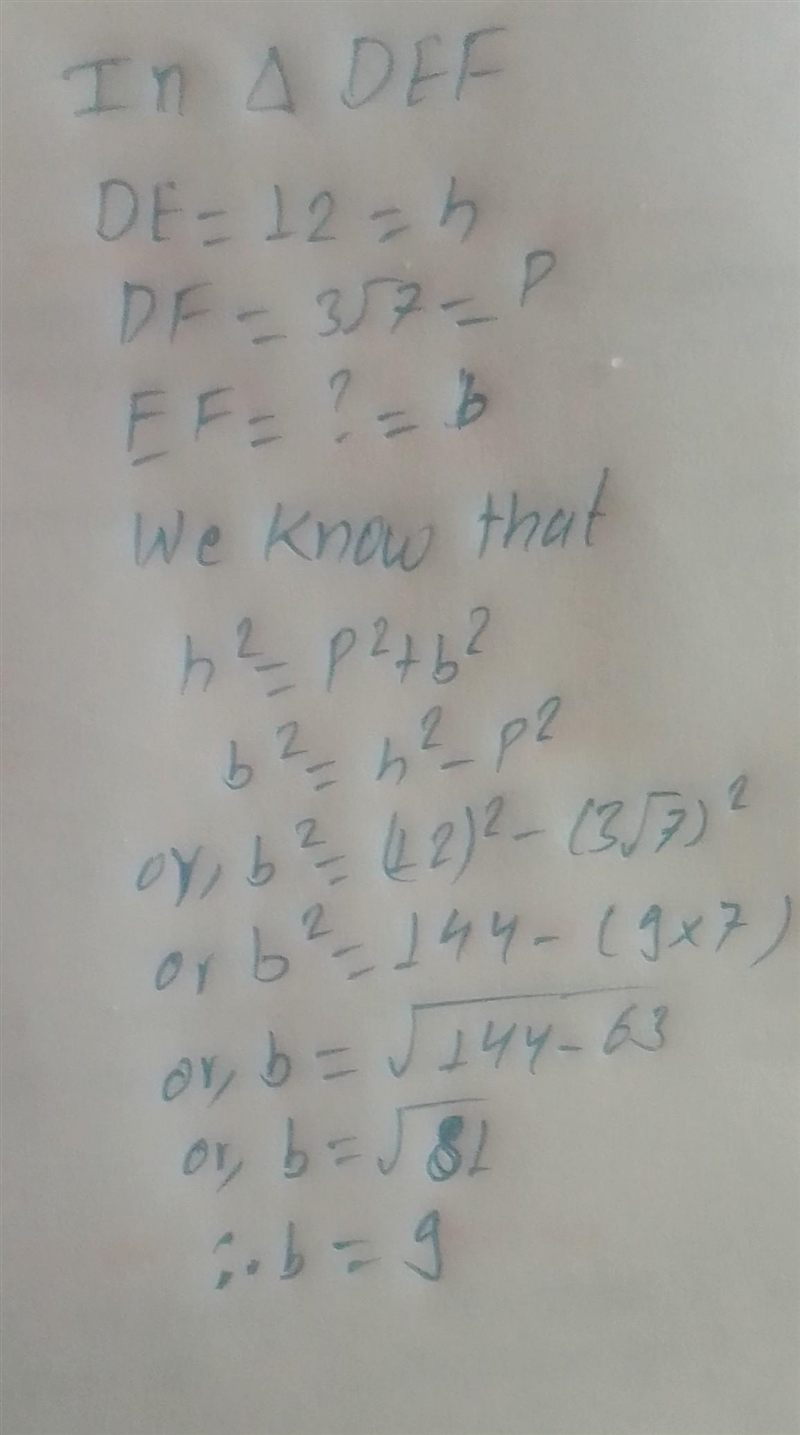 In Δ DEF
DE = 12 = h
DF = 3√7 = P
EF = ? = b
We know that
h² = P² + b²
b² = h² - P²
or, b² = (12)² - (3√7)²
or b² = 144 - (9×7)
or, b = √144 - 63
or, b = √81
∴ b = 9